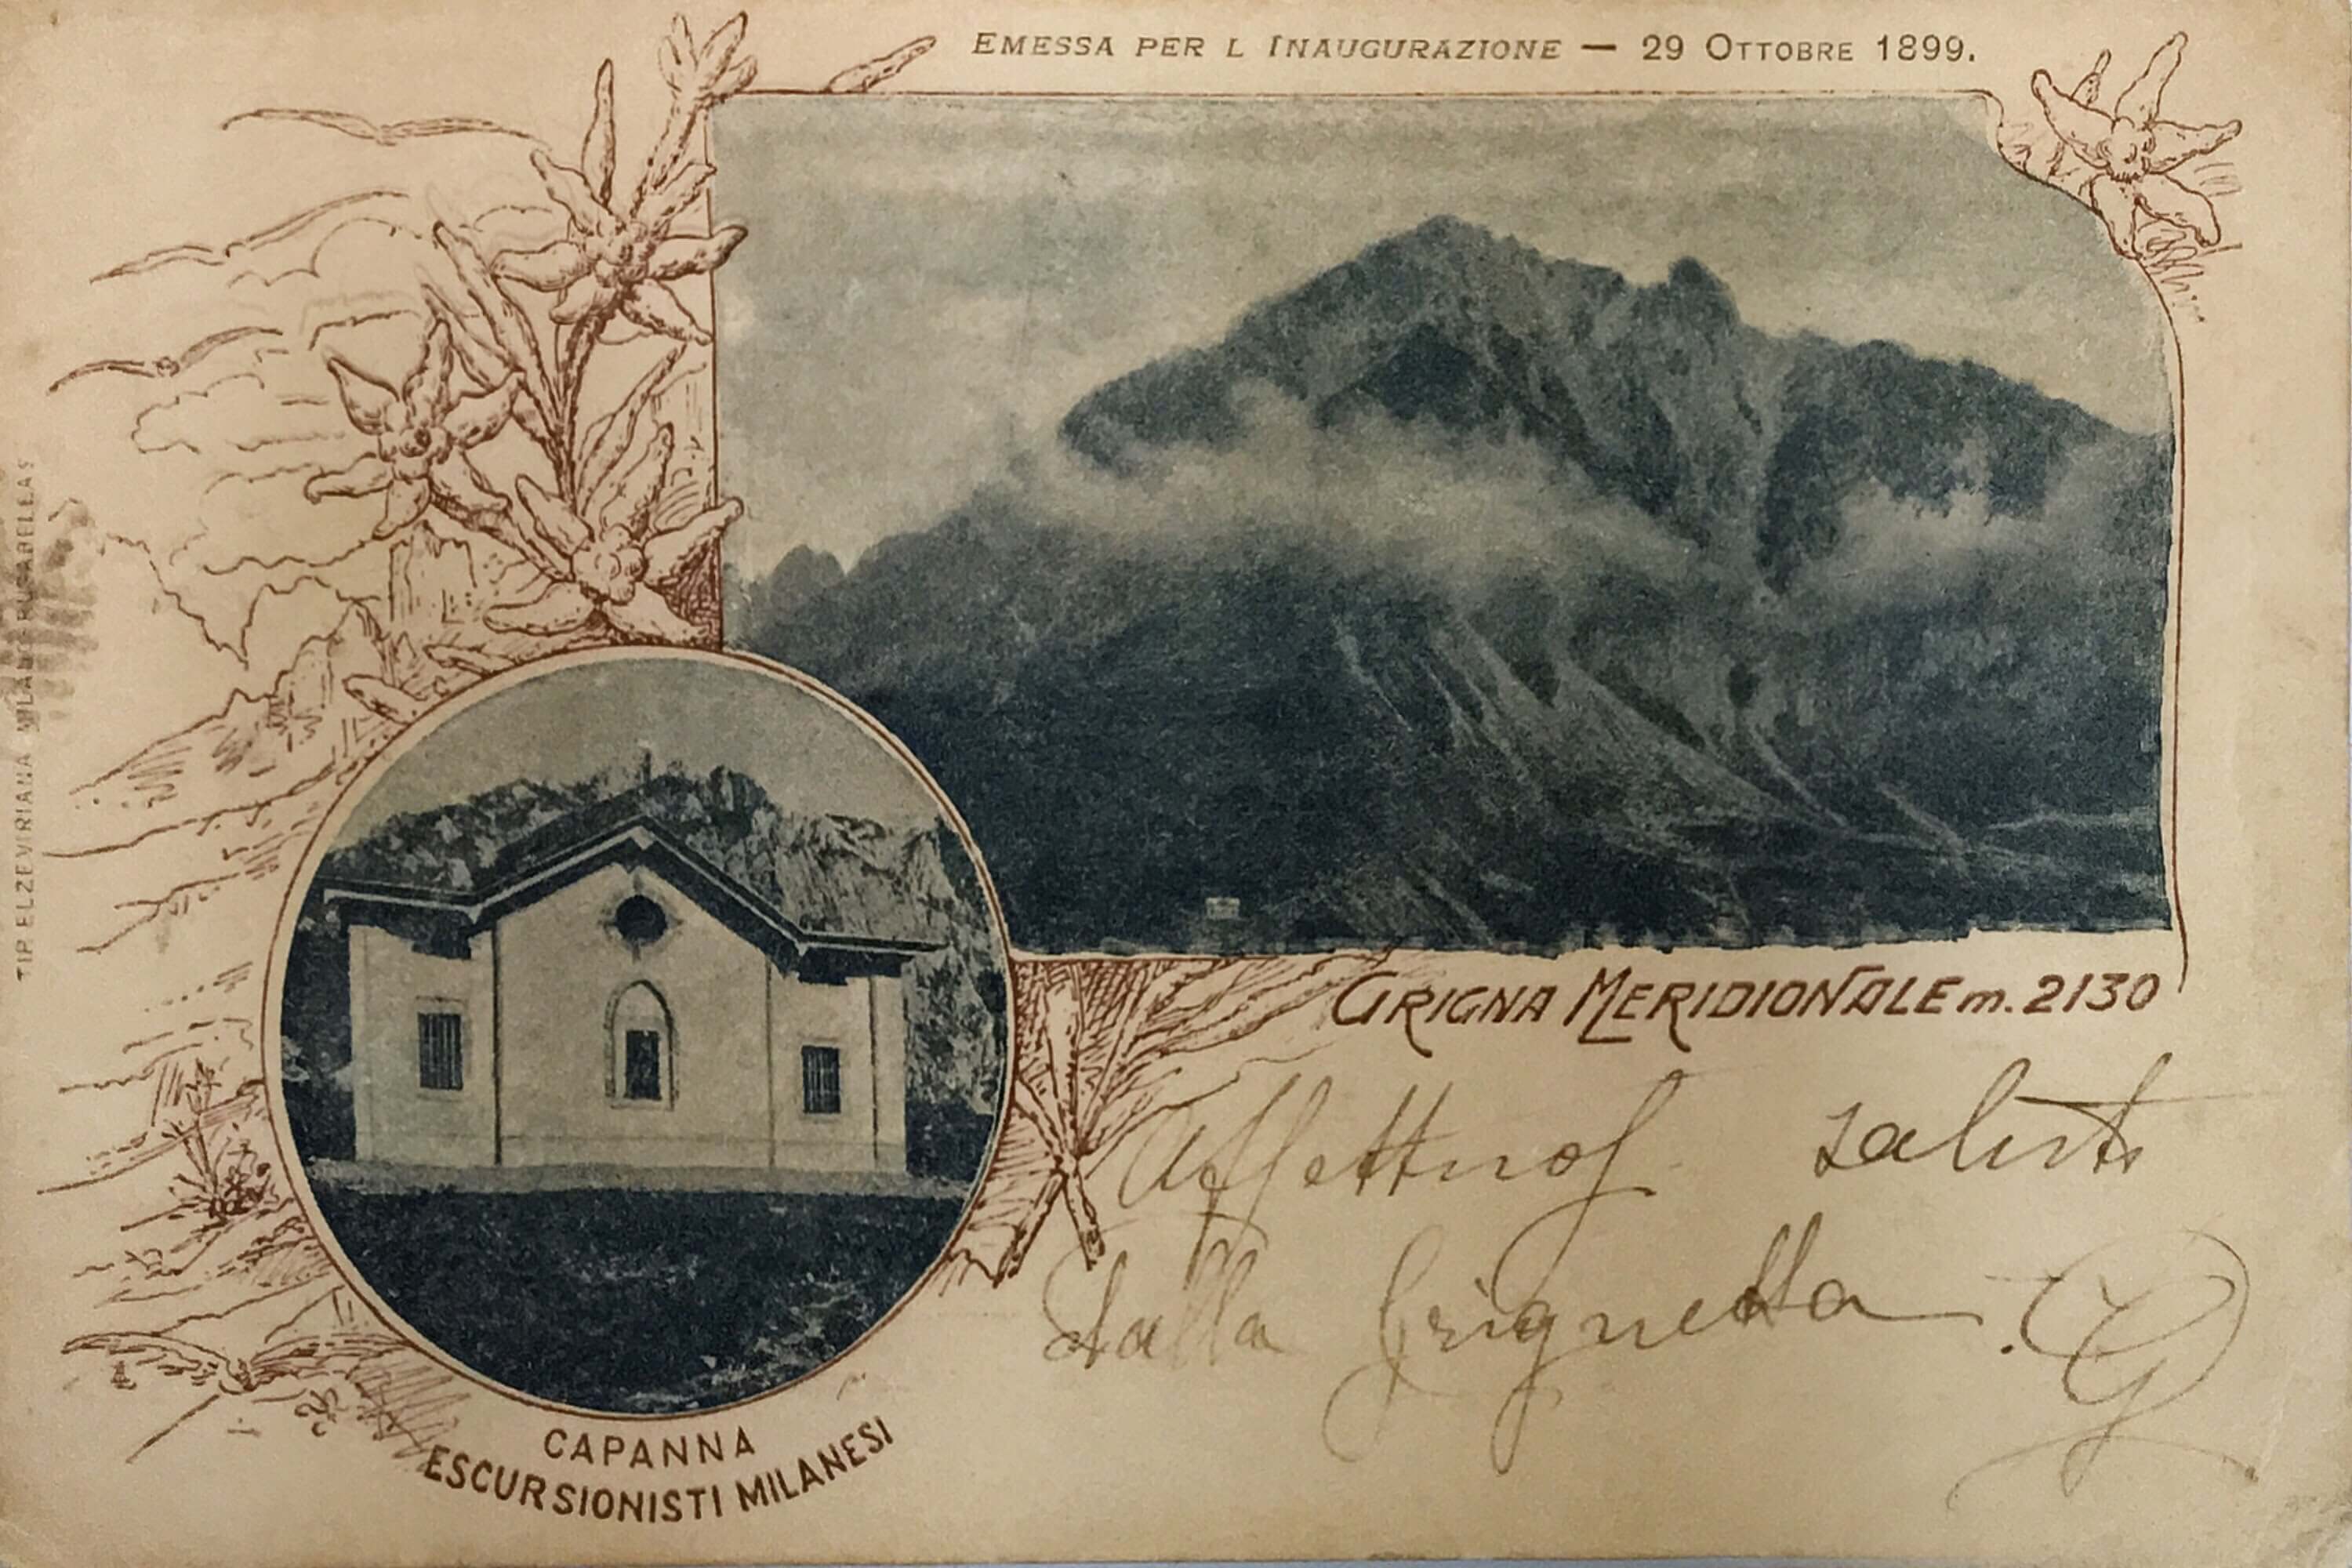 EMESSA PER L INAUGURAZIONE — 29 OTTOBRE 1899.
GRIGNA MERIDIONALE m. 2130
Affettuosi saluti
dalla Grignetta
CAPANNA
ESCURSIONISTI MILANESI
TIP ELZEVIRIANA MILANO RUSABELLAS